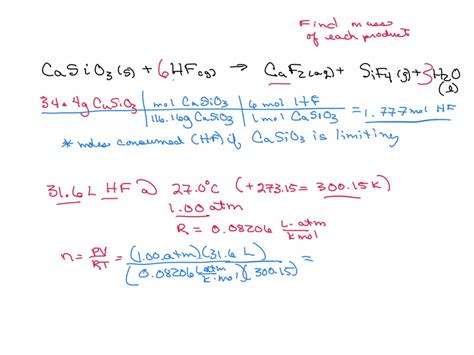 Find mass
of each product
CaSiO₃(s) + 6HF(g) → CaF₂(aq) + SiF₄(g) + 3H₂O(l)
34.4g CaSiO₃ | mol CaSiO₃ | 6 mol HF = 1.777 mol HF
116.16g CaSiO₃ | 1 mol CaSiO₃
* moles consumed (HF) if CaSiO₃ is limiting
31.6 L HF @ 27.0°C (+273.15 = 300.15K)
1.00 atm
R = 0.08206 L·atm/K·mol
n = PV/RT = (1.00 atm)(31.6 L)/(0.08206 L·atm/K·mol)(300.15) =